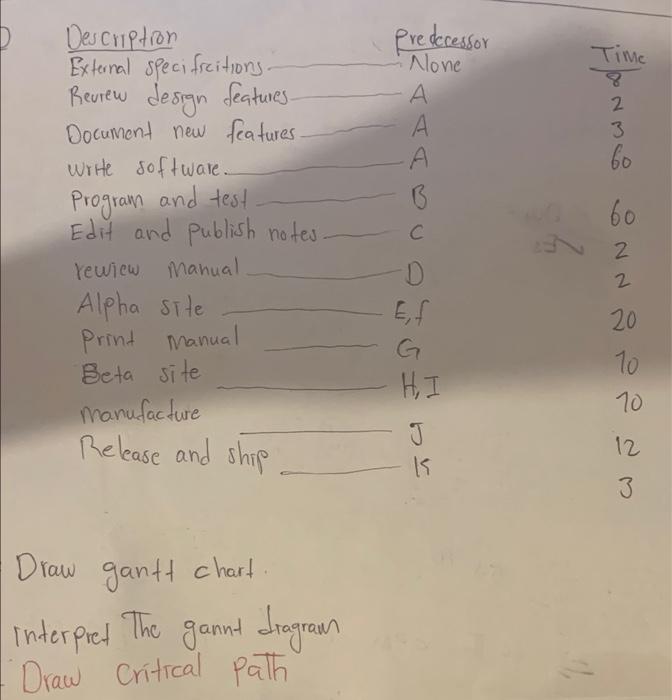 Description Predecessor Time
External specifications None 8
Review design features A 2
Document new features A 3
Write software. A 60
Program and test B 60
Edit and publish notes C 2
review manual D 2
Alpha site E,f 20
Print manual G 10
Beta site H,I 10
manufacture J 12
Release and ship K 3
Draw gantt chart.
interpret The gannt diagram
Draw Critical Path